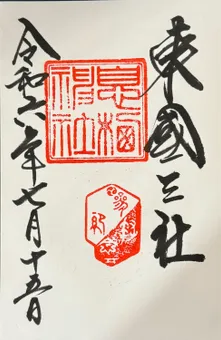 東國三社
息栖
神社
令和六年七月十五日